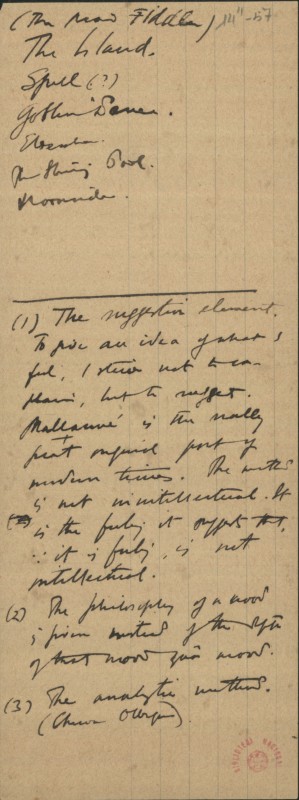 (The Mad Fiddler) 14⁴-57
The Island.
Spell (?)
Goblin Dance.
Elsewhere.
The Shining Pool.
(1) The suggestive element.
To give an idea of what I
feel, I strive not to ex-
plain, but to suggest.
Mallarmé is the really
great original poet of
modern times. The method
is not unintellectual. It
is the feeling it suggests that,
∵ it is feeling, is not
intellectual.
(2) The philosophy of a mood
is given instead of the depth
of that mood quâ mood.
(3) The analytic method.
(Chuva Oblíqua).